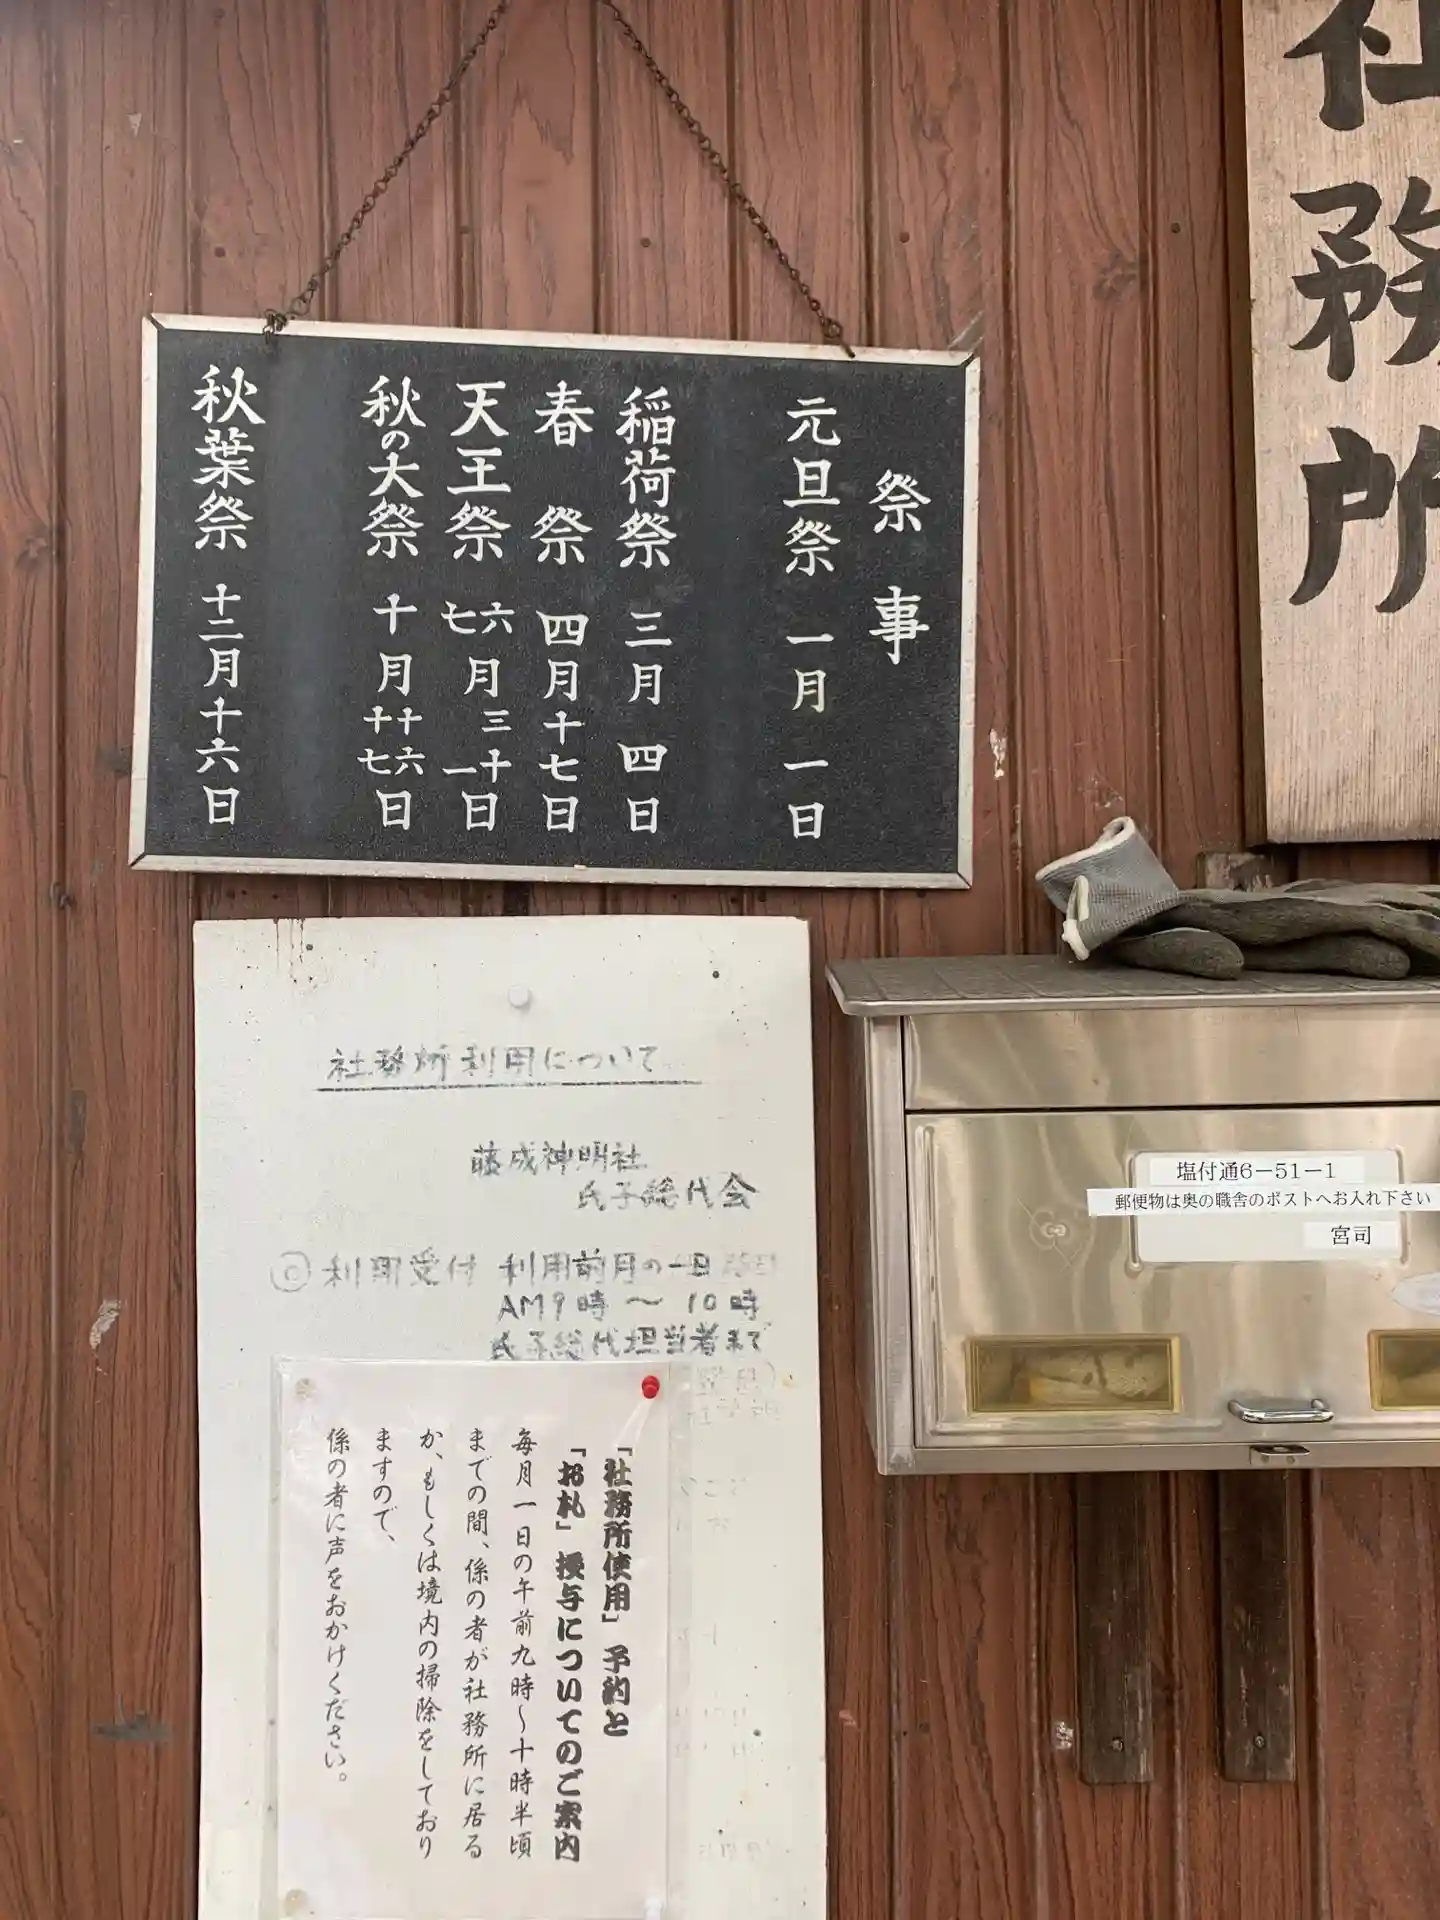 社務所
祭事
元旦祭 一月一日
稲荷祭 三月四日
春祭 四月十七日
天王祭 六七月三十一日
秋の大祭 十月十六十七日
秋葉祭 十二月十六日
社務所利用について
藤成神明社
氏子総代会
◎利用受付 利用前月の一日
AM9時～10時
氏子総代担当者まで
「社務所使用」予約と
「お札」授与についてのご案内
毎月一日の午前九時～十時半頃
までの間、係の者が社務所に居る
か、もしくは境内の掃除をしており
ますので、
係の者に声をおかけください。
塩付通6－51－1
郵便物は奥の職舎のポストへお入れ下さい
宮司